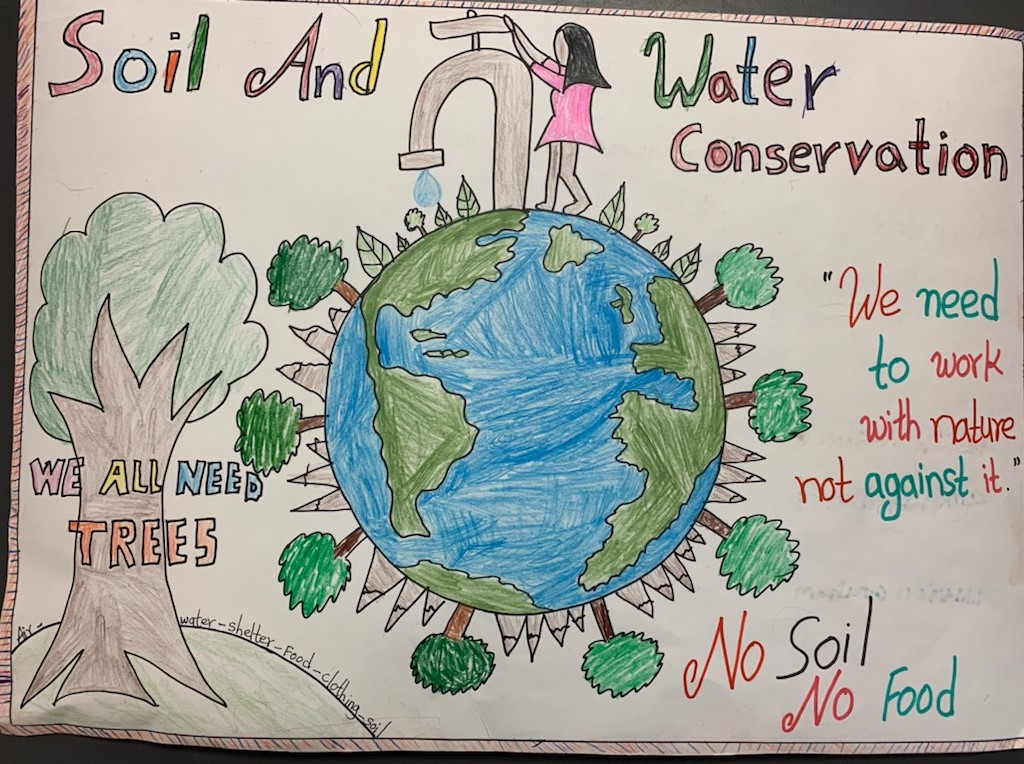 Soil And Water
Conservation
"We need
to work
with nature
not against it."
WE ALL NEED
TREES
Air-
water-shelter-Food-clothing-soil
No Soil
No Food